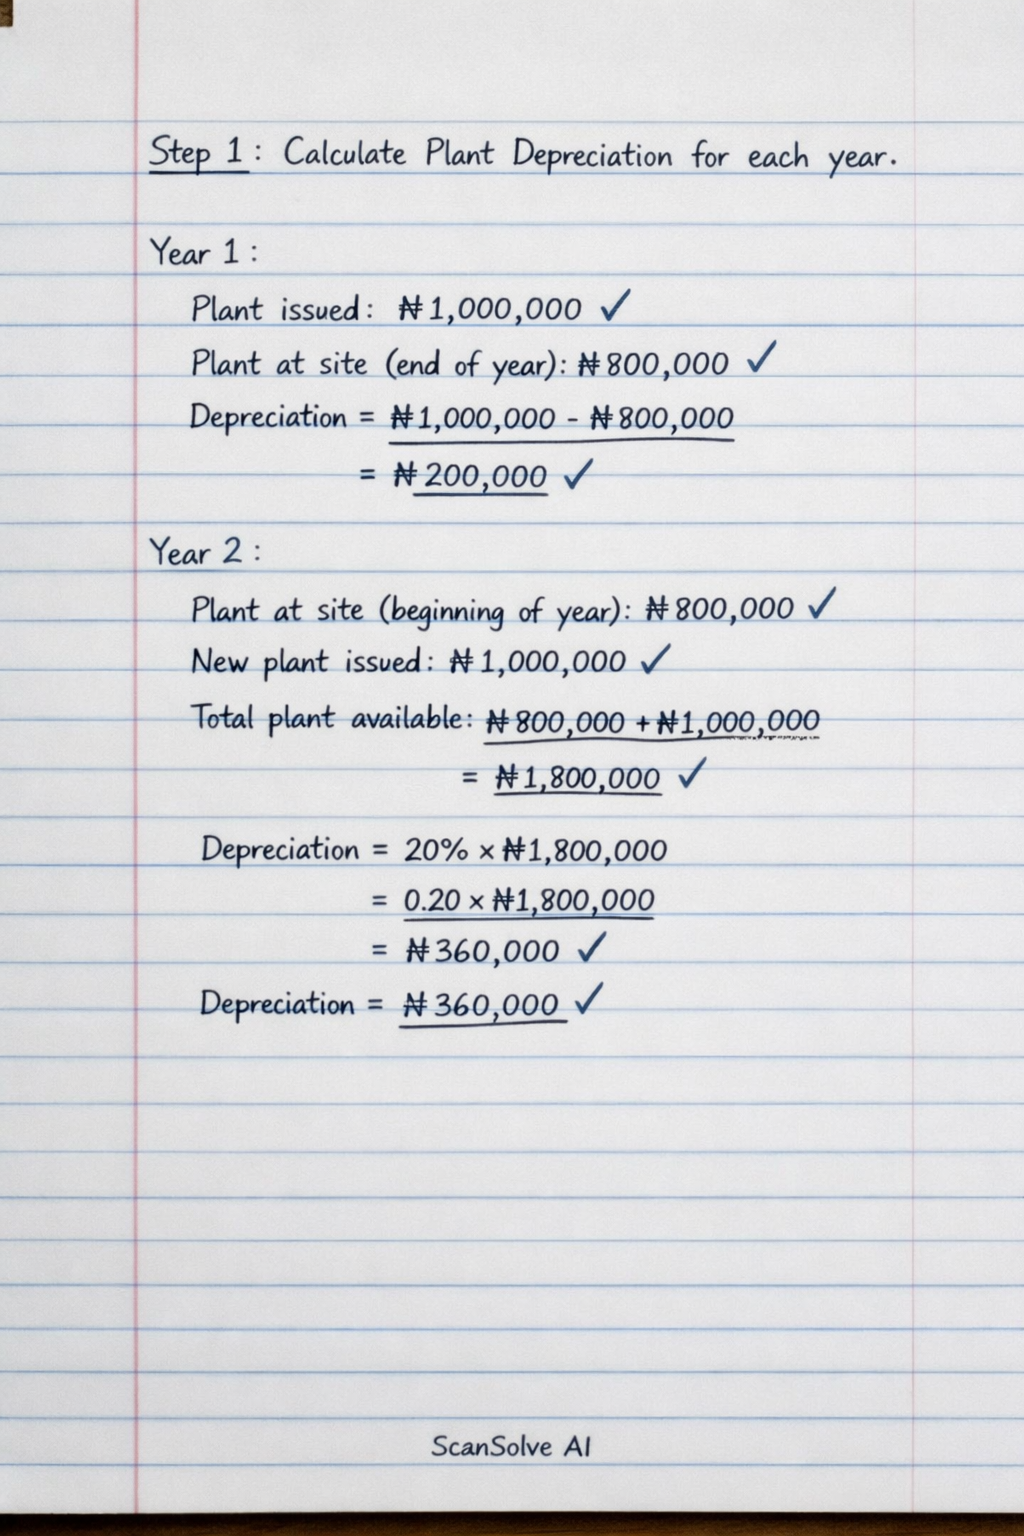 Step 1: Calculate Plant Depreciation for each year.
Year 1:
Plant issued: ₦1,000,000 ✓
Plant at site (end of year): ₦800,000 ✓
Depreciation = ₦1,000,000 - ₦800,000
= ₦200,000 ✓
Year 2:
Plant at site (beginning of year): ₦800,000 ✓
New plant issued: ₦1,000,000 ✓
Total plant available: ₦800,000 + ₦1,000,000
= ₦1,800,000 ✓
Depreciation = 20% × ₦1,800,000
= 0.20 × ₦1,800,000
= ₦360,000 ✓
Depreciation = ₦360,000 ✓
ScanSolve AI